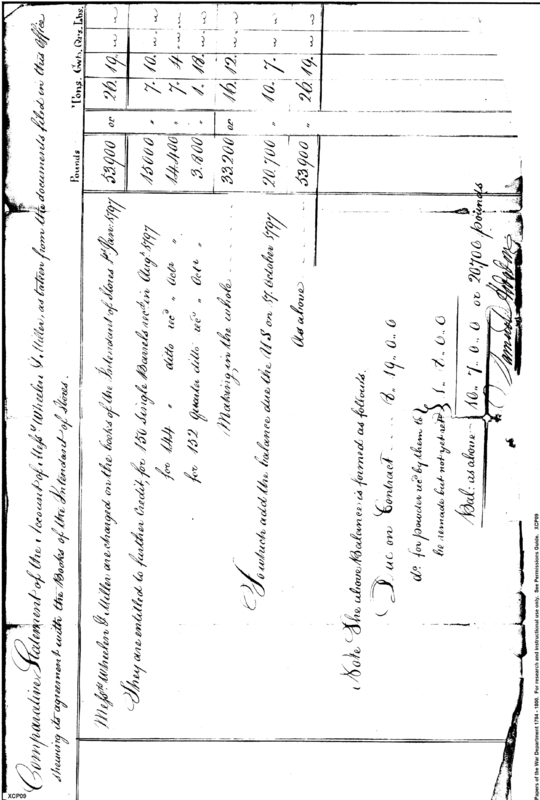 Comparative Statement of the Account of Messrs Whelen & Miller, as taken from the documents filed in this Office
shewing its agreement with the Books of the Intendant of Stores.
Pounds Tons. Cwts. Qrs. Lbs.
Messrs Whelen & Miller are charged on the books of the Intendant of Stores 1st Jan: 1797 53,900 or 26. 19. " "
They are entitled to further Credit, for 150 single Barrels recd in Augt 1797 15000 " 7. 10. " "
for 144 " ditto recd " Octr " 14.400 " 7. 4. " "
for 152 quarter ditto recd " Octr " 3.800 " 1. 18. " "
Making in the whole 33,200 or 16. 12. " "
To which add the balance due the U S on 17 October 1797 20,700 " 10. 7. " "
As above 53,900 " 26. 19. " "
Note The above Balance is formed as follows.
Due on Contract 8. 19.. 0.. 0
do for powder recd by them to
be remade but not yet retd 1.. 8.. 0.. 0
Bal: as above 10.. 7.. 0.. 0 or 20700 pounds
Samuel Hodgdon
XCP09
Papers of the War Department 1784 - 1800. For research and instructional use only. See Permissions Guide. XCP09